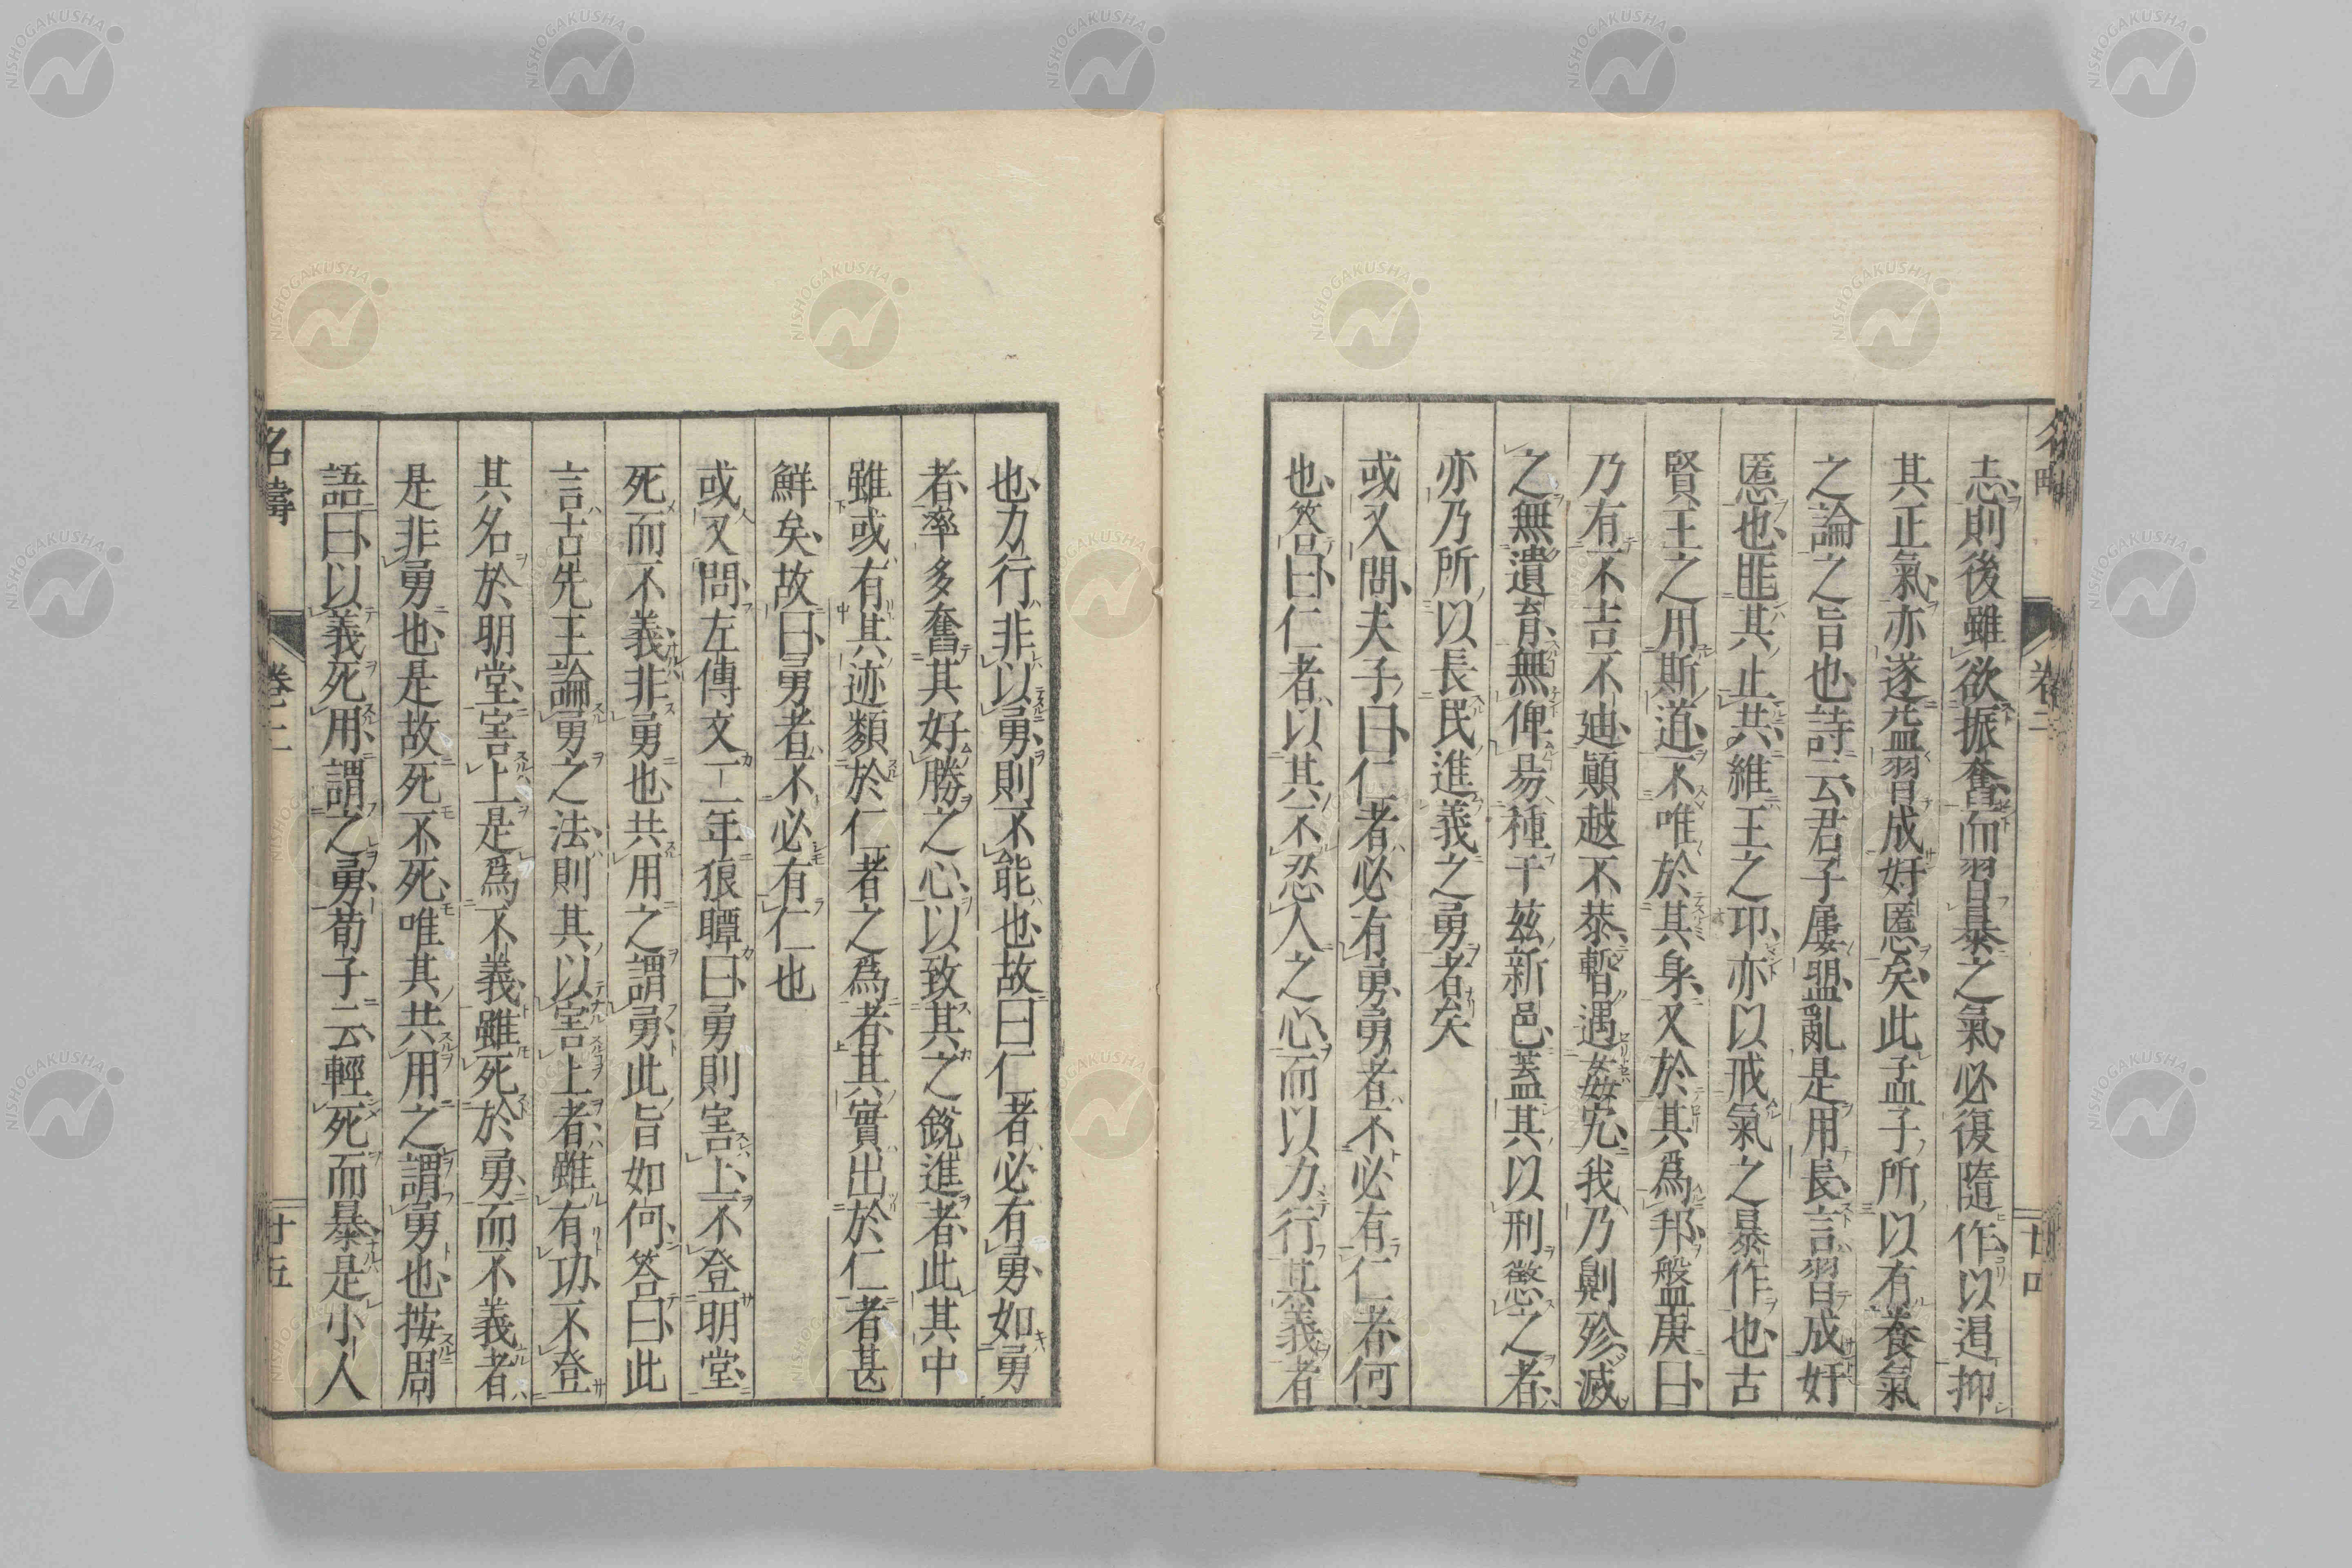 志、則後雖欲振奮、而習暴之氣、必復隨作、以遏抑
其正氣、亦遂益習成奸慝矣、此孟子所以有養氣
之論之旨也、詩云、君子屢盟、亂是用長、言習成奸
慝也、匪其止共、維王之邛、亦以戒氣之暴作也、古
賢王之用斯道、不唯於其身、又於其爲邦、盤庚曰、
乃有不吉不迪、顚越不恭、暫遇姦宄、我乃劓殄滅
之無遺育、無俾易種于茲新邑、蓋其以刑懲之者、
亦乃所以長民進義之勇者矣
或又問、夫子曰、仁者必有勇、勇者不必有仁者、何
也、答曰、仁者、以其不忍人之心、而以力行其義者
也、力行非以勇、則不能也、故曰仁者必有勇、如勇
者、率多奮其好勝之心、以致其之銳進者、此其中
雖或有其迹類於仁者之爲者、其實出於仁者甚
鮮矣、故曰、勇者不必有仁也
或又問、左傳文二年狼瞫曰、勇則害上、不登明堂、
死而不義、非勇也、共用之謂勇、此旨如何、答曰、此
言古先王論勇之法、則其以害上者、雖有功、不登
其名於明堂、害上是爲不義、雖死於勇、而不義者
是非勇也、是故死不死、唯其共用之謂勇也、按周
語曰、以義死用、謂之勇、荀子云、輕死而暴、是小人
名疇
卷二
廿五